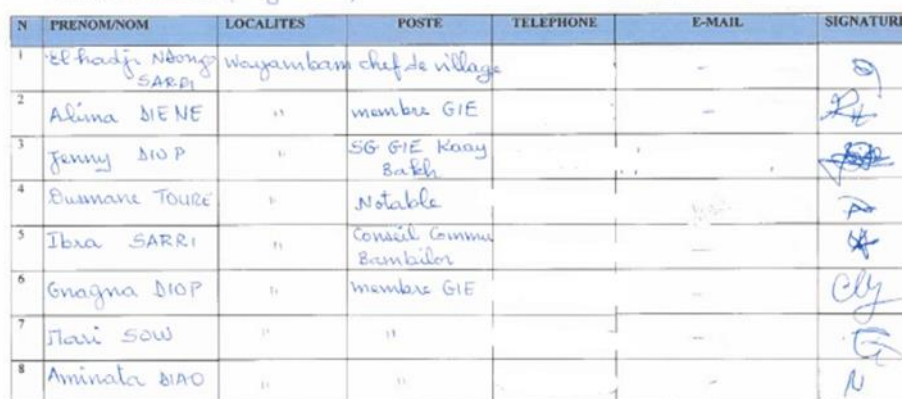 N PRENOM/NOM LOCALITES POSTE TELEPHONE E-MAIL SIGNATURE
1 El hadji Ndong Wayambam chef de village -
SARRI
2 Alima DIENE " membre GIE -
3 Jenny DIOP " SG GIE Kaay
Bakh
4 Ousmane TOURE " Notable
5 Ibra SARRI " Conseil Commu -
Bambilor
6 Gnagna DIOP " membre GIE -
7 Mari SOW " " -
8 Aminata DIAO " " -